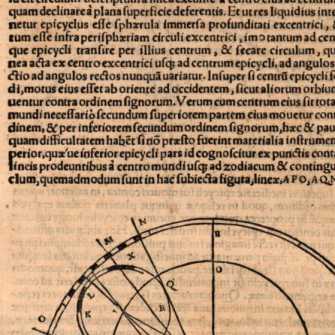 quam declinare à plana superficie deferentis. Et ut res liquidius int
netur epicyclus esse sphærula immersa profunditati excentrici, i
tum esse infra peripheriam circuli excentrici, imo tantum ad cen
que epicycli transire per illius centrum, & secare circulum, qu
nea acta ex centro excentrici usq; ad centrum epicycli, ad angulos
ctio ad angulos rectos nunquã uariatur. Insuper si centrũ epicycli f
di, motus eius esset ab oriente ad occidentem, sicut aliorum orbiu
uentur contra ordinem signorum. Verum cum centrum eius sit tot
mundi necessariò secundum superiorem partem eius mouetur cont
dinem, & per inferiorem secundum ordinem signorum, hæc & par
quam difficultatem habẽt si nõ præsto fuerint materialia instrumen
perior, quæ ue inferior epicycli pars id cognoscitur ex punctis conta
lineis prodeuntibus à centro mundi usq; ad zodiacum & contingu
clum, quemadmodum sunt in hac subiecta figura, lineæ, A P O, A Q N
M N
H
O
X
Q
L
K
R
O